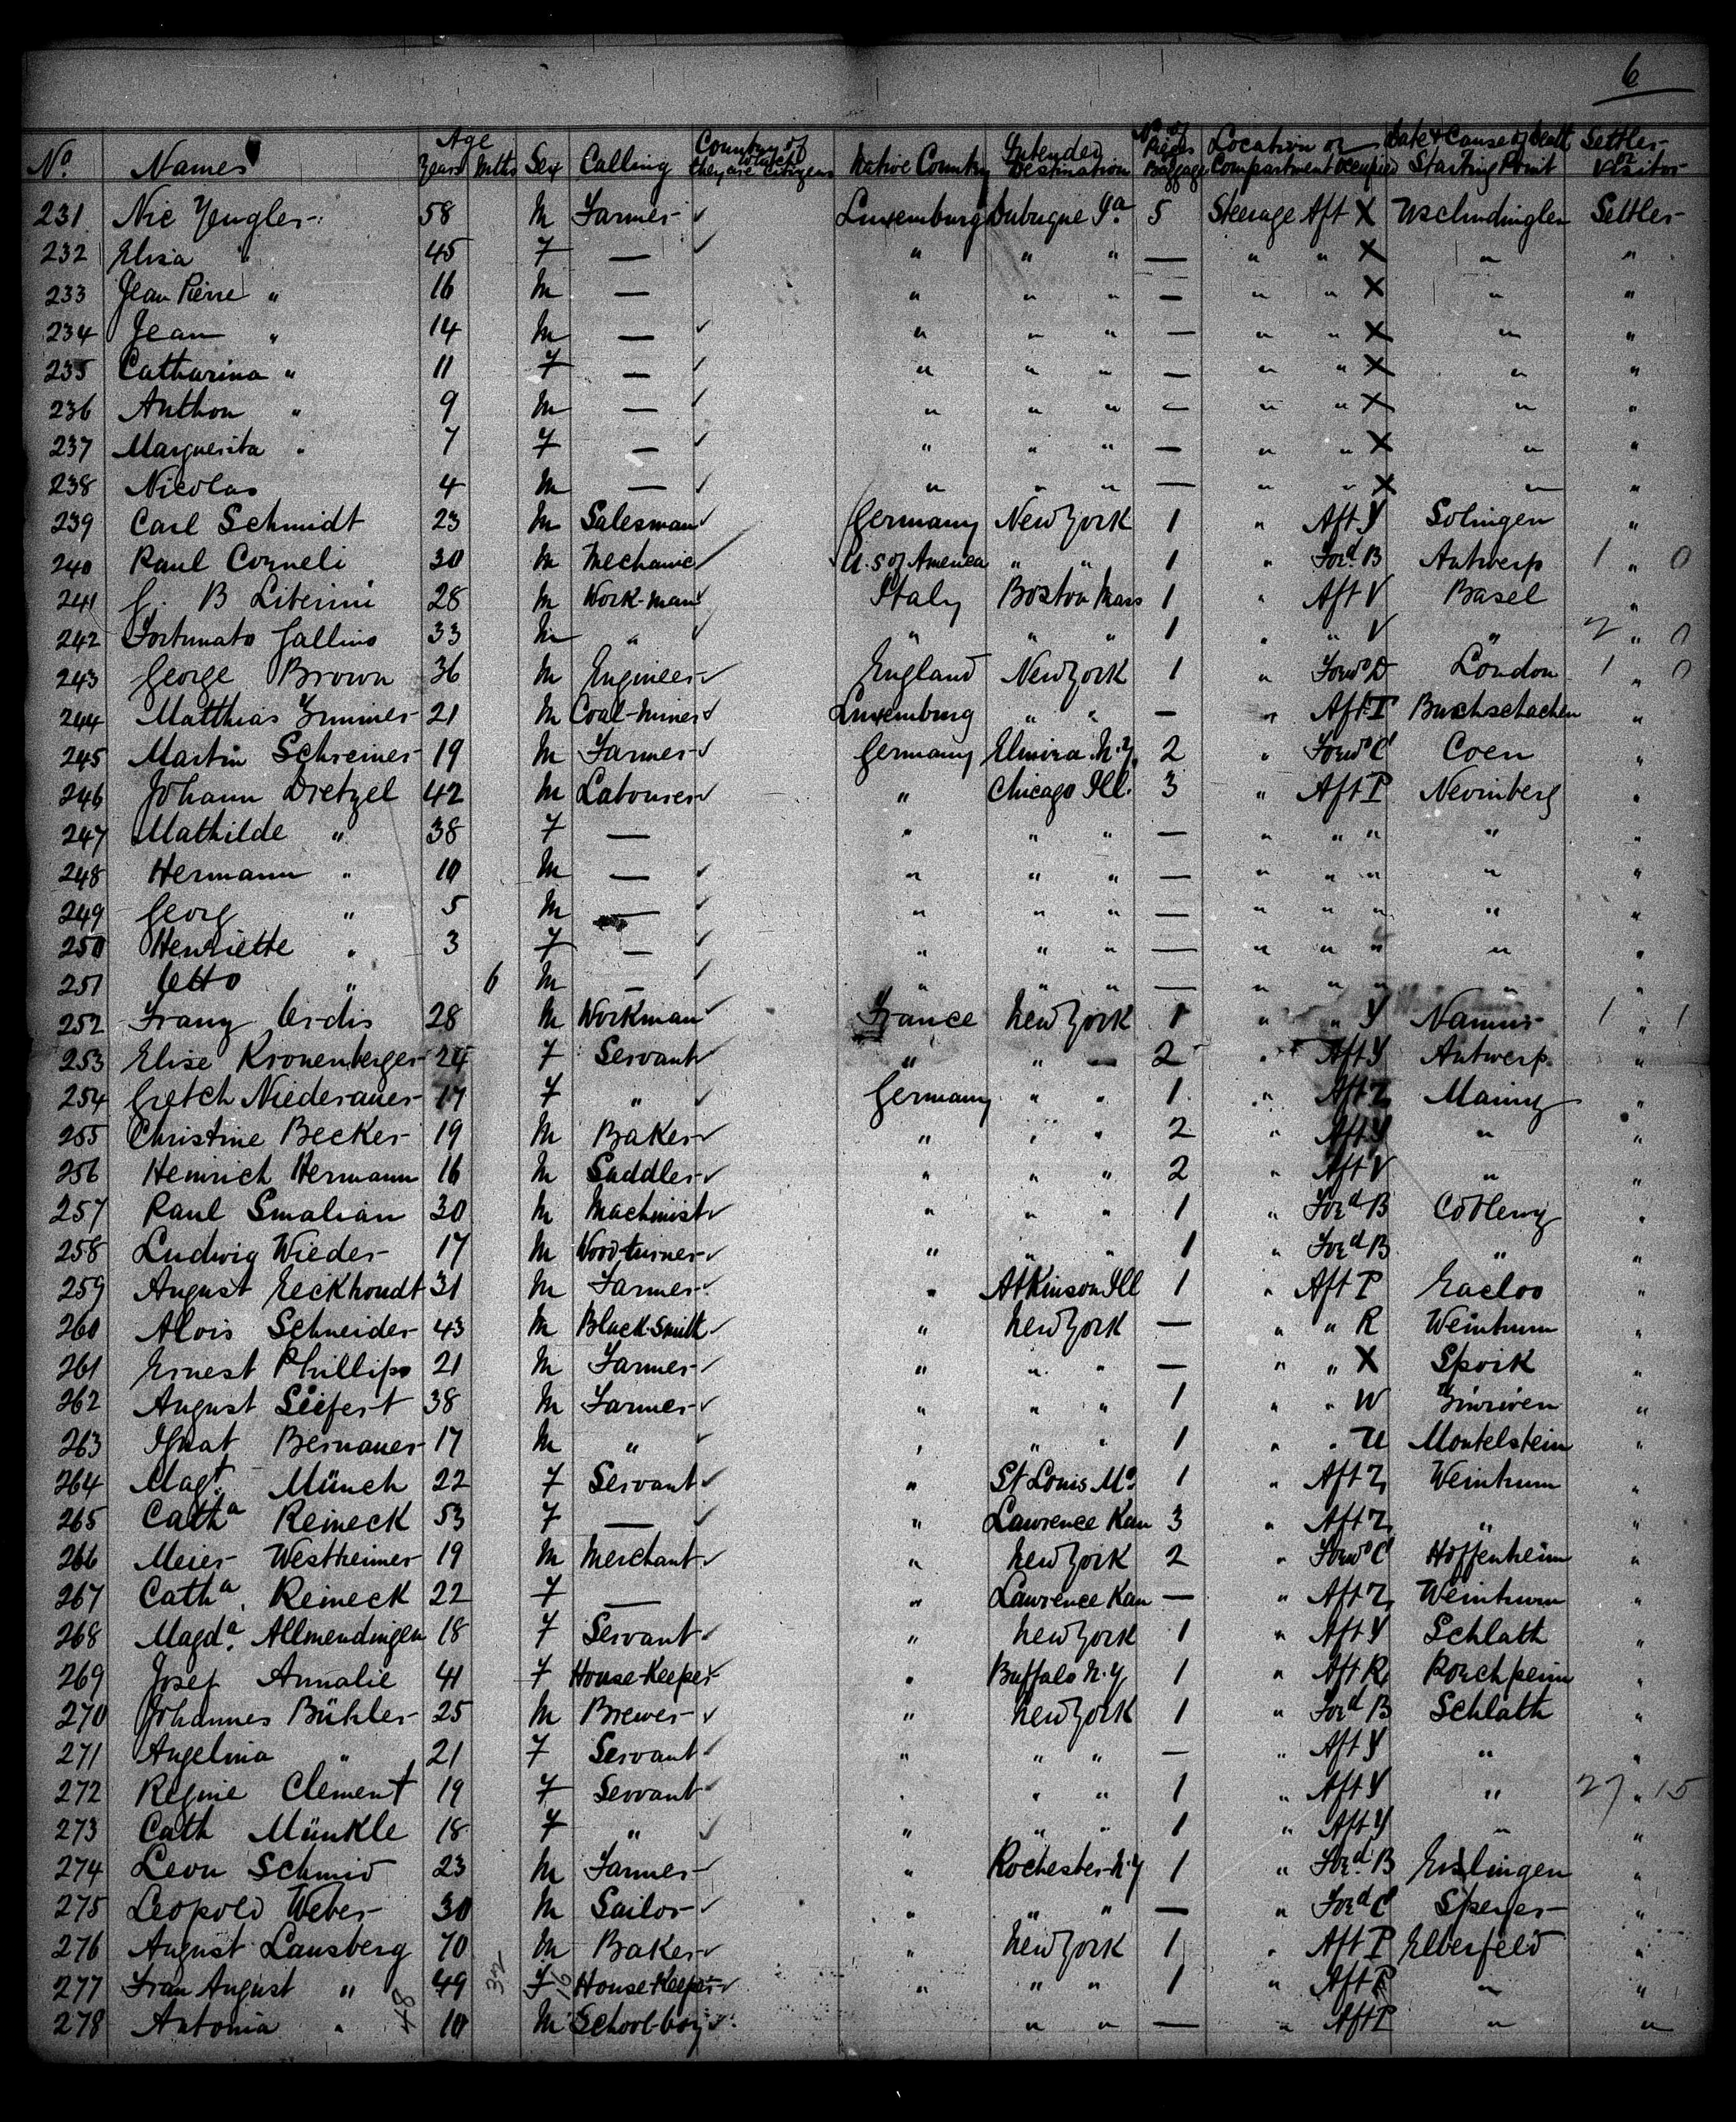 6
No. Names Age Years Mths Sex Calling Country of which they are Citizens Native Country Intended Destination No. of Pieces Baggage Location or Compartment Occupied Date & Cause of Death Starting Point Settler or Visitor
231 Nic 58 M Farmer ✓ Luxemburg Dubuque Ia 5 Steerage Aft X Settler
232 Elisa " 45 F — ✓ " " " — " " X " "
233 Jean Pierre " 16 M — " " " — " " X " "
234 Jean " 14 M — ✓ " " " — " " X " "
235 Catharina " 11 F — ✓ " " " — " " X " "
236 Anthon " 9 M — ✓ " " " — " " X " "
237 Marguerita " 7 F — ✓ " " " — " " X " "
238 Nicolas 4 M — ✓ " " " — " " X " "
239 Carl Schmidt 23 M Salesman ✓ Germany New York 1 " Aft Y Solingen "
240 Paul Corneli 30 M Mechanic ✓ U.S. of America " " 1 " Ford. B Antwerp 1 " 0
241 G. B Liberini 28 M Work-man ✓ Italy Boston Mass 1 " Aft V Basel "
242 Fortunato Gallino 33 M " ✓ " " " 1 " " V " 2 " 0
243 George Brown 36 M Engineer ✓ England New York 1 " Forwd D London 1 " 0
244 Matthias 21 M Coal-Miner ✓ Luxemburg " " — " Aft P Buchschachen "
245 Martin Schreiner 19 M Farmer ✓ Germany Elmira N.Y. 2 " Forwd C Coen "
246 Johann Dietzel 42 M Labourer ✓ " Chicago Ill. 3 " Aft P "
247 Mathilde " 38 F — " " " — " " " " "
248 Hermann " 10 M — ✓ " " " — " " " " "
249 Georg " 5 M — ✓ " " " — " " " " "
250 Henriette " 3 F — ✓ " " " — " " " " "
251 Otto " 6 M — ✓ " " " — " " " " "
252 Franz 28 M Workman ✓ France New York 1 " " Y Namur 1 " 1
253 Elise Kronenberger 24 F Servant ✓ " " — 2 " Aft Y Antwerp "
254 Gretch Niederauer 17 F " ✓ Germany " " 1 " Aft Z Mainz "
255 Christine Becker 19 M Baker ✓ " " " 2 " Aft Y " "
256 Heinrich Hermann 16 M Saddler ✓ " " " 2 " Aft V " "
257 Paul Smalian 30 M Machinist ✓ " " " 1 " Ford B Coblenz "
258 Ludwig Wieder 17 M Wood-turner ✓ " " " 1 " Ford B " "
259 August Eeckhoudt 31 M Farmer ✓ " Atkinson Ill 1 " Aft P Eecloo "
260 Alois Schneider 43 M Black-Smith ✓ " New York — " " R Weintrum "
261 Ernest Phillips 21 M Farmer ✓ " " " — " " X Spoik "
262 August Seifert 38 M Farmer ✓ " " " 1 " " W "
263 Ignat Bernauer 17 M " ✓ " " " 1 " " U Montelstein "
264 Magt. Münch 22 F Servant ✓ " St Louis Mo 1 " Aft Z Weintrum "
265 Catha Reineck 53 F — ✓ " Lawrence Kan 3 " Aft Z " "
266 Meier Westheimer 19 M Merchant ✓ " New York 2 " Forwd C Hoffenheim "
267 Catha. Reineck 22 F — " Lawrence Kan — " Aft Z Weintrum "
268 Magda. Allmendingen 18 F Servant ✓ " New York 1 " Aft Y Schlath "
269 Josef Annalie 41 F House-Keeper " Buffalo N.Y 1 " Aft R "
270 Johannes Bühler 25 M Brewer ✓ " New York 1 " Ford B Schlath "
271 Angelina " 21 F Servant ✓ " " " — " Aft Y " "
272 Regine Clement 19 F Servant ✓ " " " 1 " Aft Y " 27 " 15
273 Cath Münkle 18 F " ✓ " " " 1 " Aft Y " "
274 Leon Schmid 23 M Farmer ✓ " Rochester N.Y 1 " Ford B Esslingen "
275 Leopold Weber 30 M Sailor ✓ " " " — " Ford C Speyer "
276 August Lausberg 70 M Baker ✓ " New York 1 " Aft P Elberfeld "
277 Frau August " 49 32 F 16 House-Keeper ✓ " " " 1 " Aft P " "
278 Antonia " 48 10 M School-boy ✓ " " — " Aft P " "